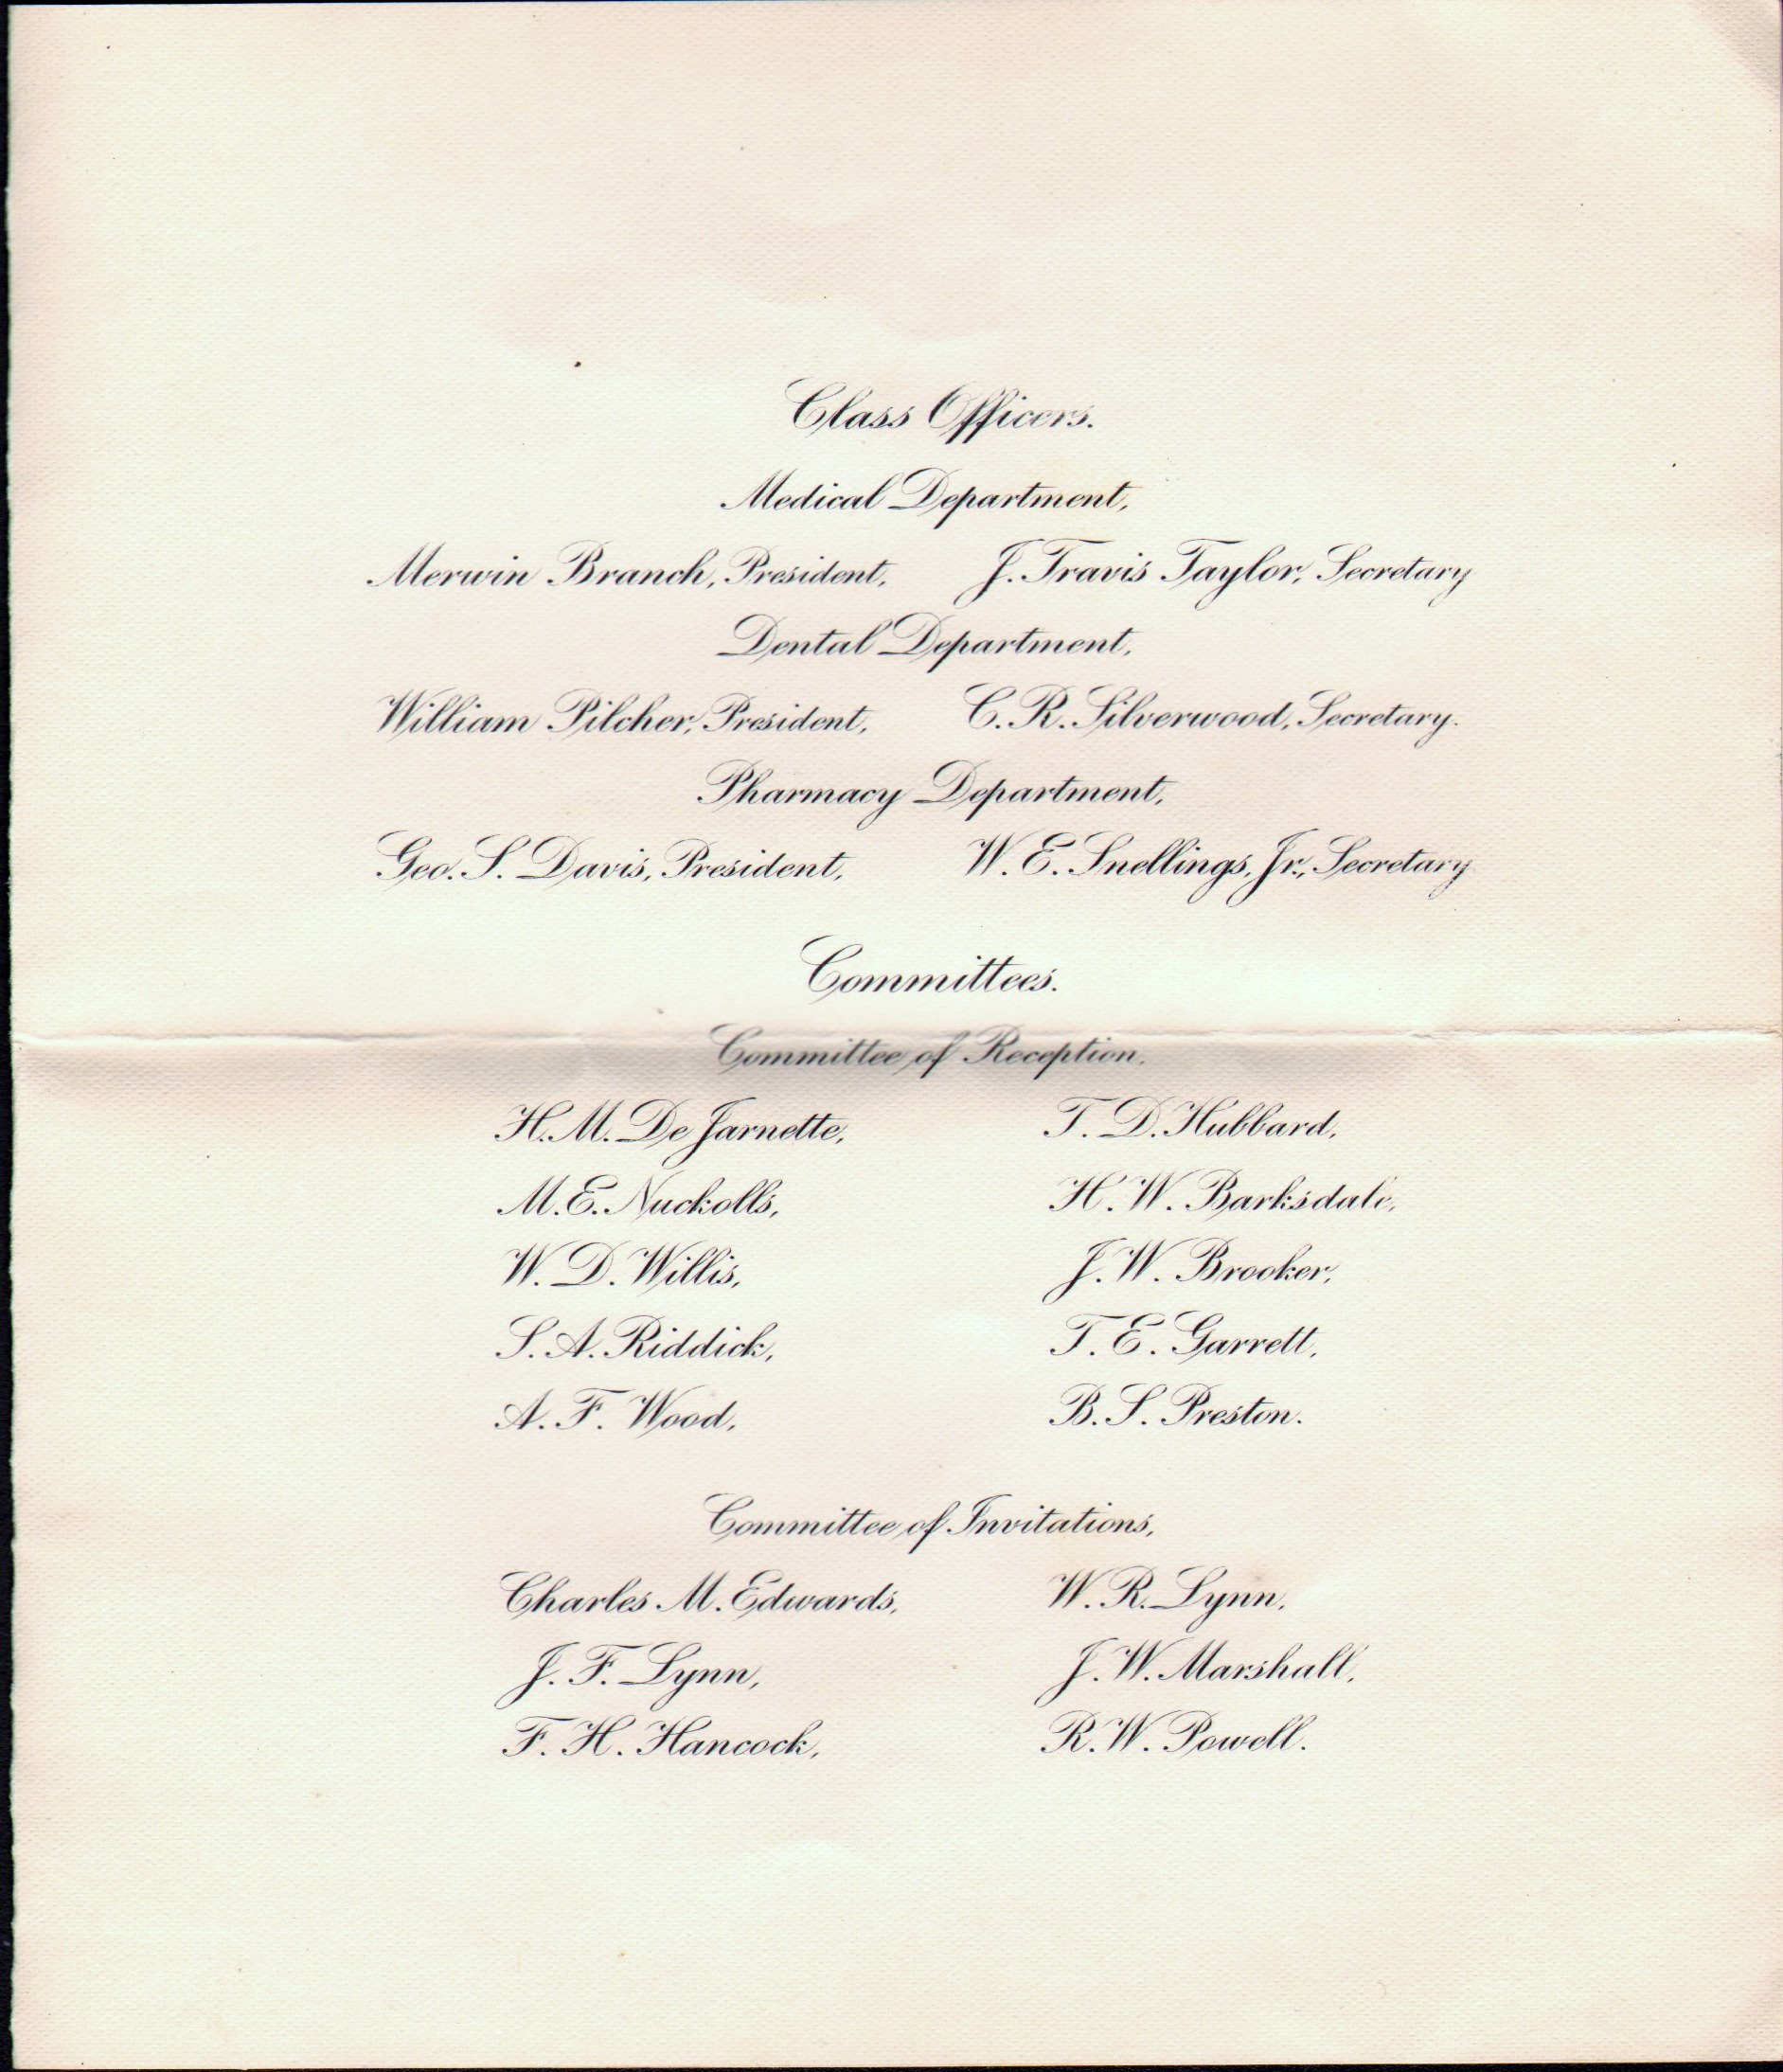 Class Officers.
Medical Department,
Merwin Branch, President, J. Travis Taylor, Secretary
Dental Department,
William Pilcher, President, C. R. Silverwood, Secretary.
Pharmacy Department,
Geo. S. Davis, President, W. E. Snellings, Jr., Secretary
Committees.
Committee of Reception.
H. M. De Jarnette, T. D. Hubbard,
M. E. Nuckolls, H. W. Barksdale,
W. D. Willis, J. W. Brooker,
S. A. Riddick, T. E. Garrett,
A. F. Wood, B. S. Preston.
Committee of Invitations,
Charles M. Edwards, W. R. Lynn,
J. F. Lynn, J. W. Marshall,
F. H. Hancock, R. W. Powell.